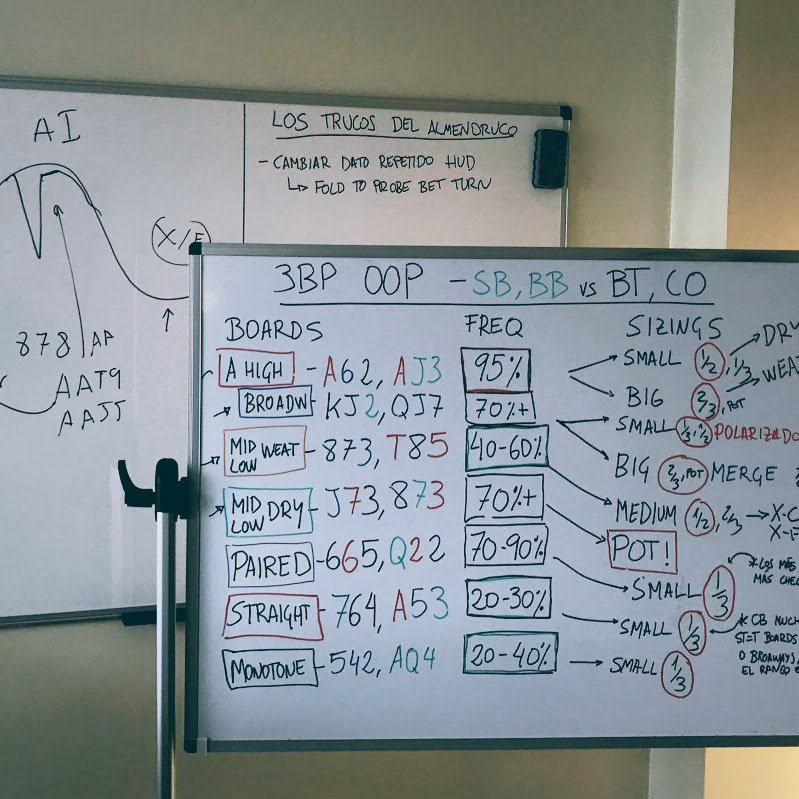 AI
X/F
878 AP
AAT9
AAJJ
LOS TRUCOS DEL ALMENDRUCO
- CAMBIAR DATO REPETIDO HUD
↳ FOLD TO PROBE BET TURN
3BP OOP - SB, BB vs BT, CO
BOARDS FREQ SIZINGS
A HIGH - A62, AJ3 95% SMALL 1/2, 1/3
BROADW - KJ2, QJ7 70%+ BIG 2/3, POT
MID LOW WEAT - 873, T85 40-60% SMALL 1/3, 1/2 POLARIZADO
MID LOW DRY - J73, 873 70%+ BIG 2/3, POT MERGE
PAIRED - 665, Q22 70-90% MEDIUM 1/2, 2/3 → X-C
STRAIGHT - 764, A53 20-30% POT!
MONOTONE - 542, AQ4 20-40% SMALL 1/3
SMALL 1/3
→ SMALL 1/3
DRY
WEA
X-F
* LOS MÁS
MAS CHEC
* CB MUCH
ST=T BOARDS
O BROAWAYS,
EL RANGO E